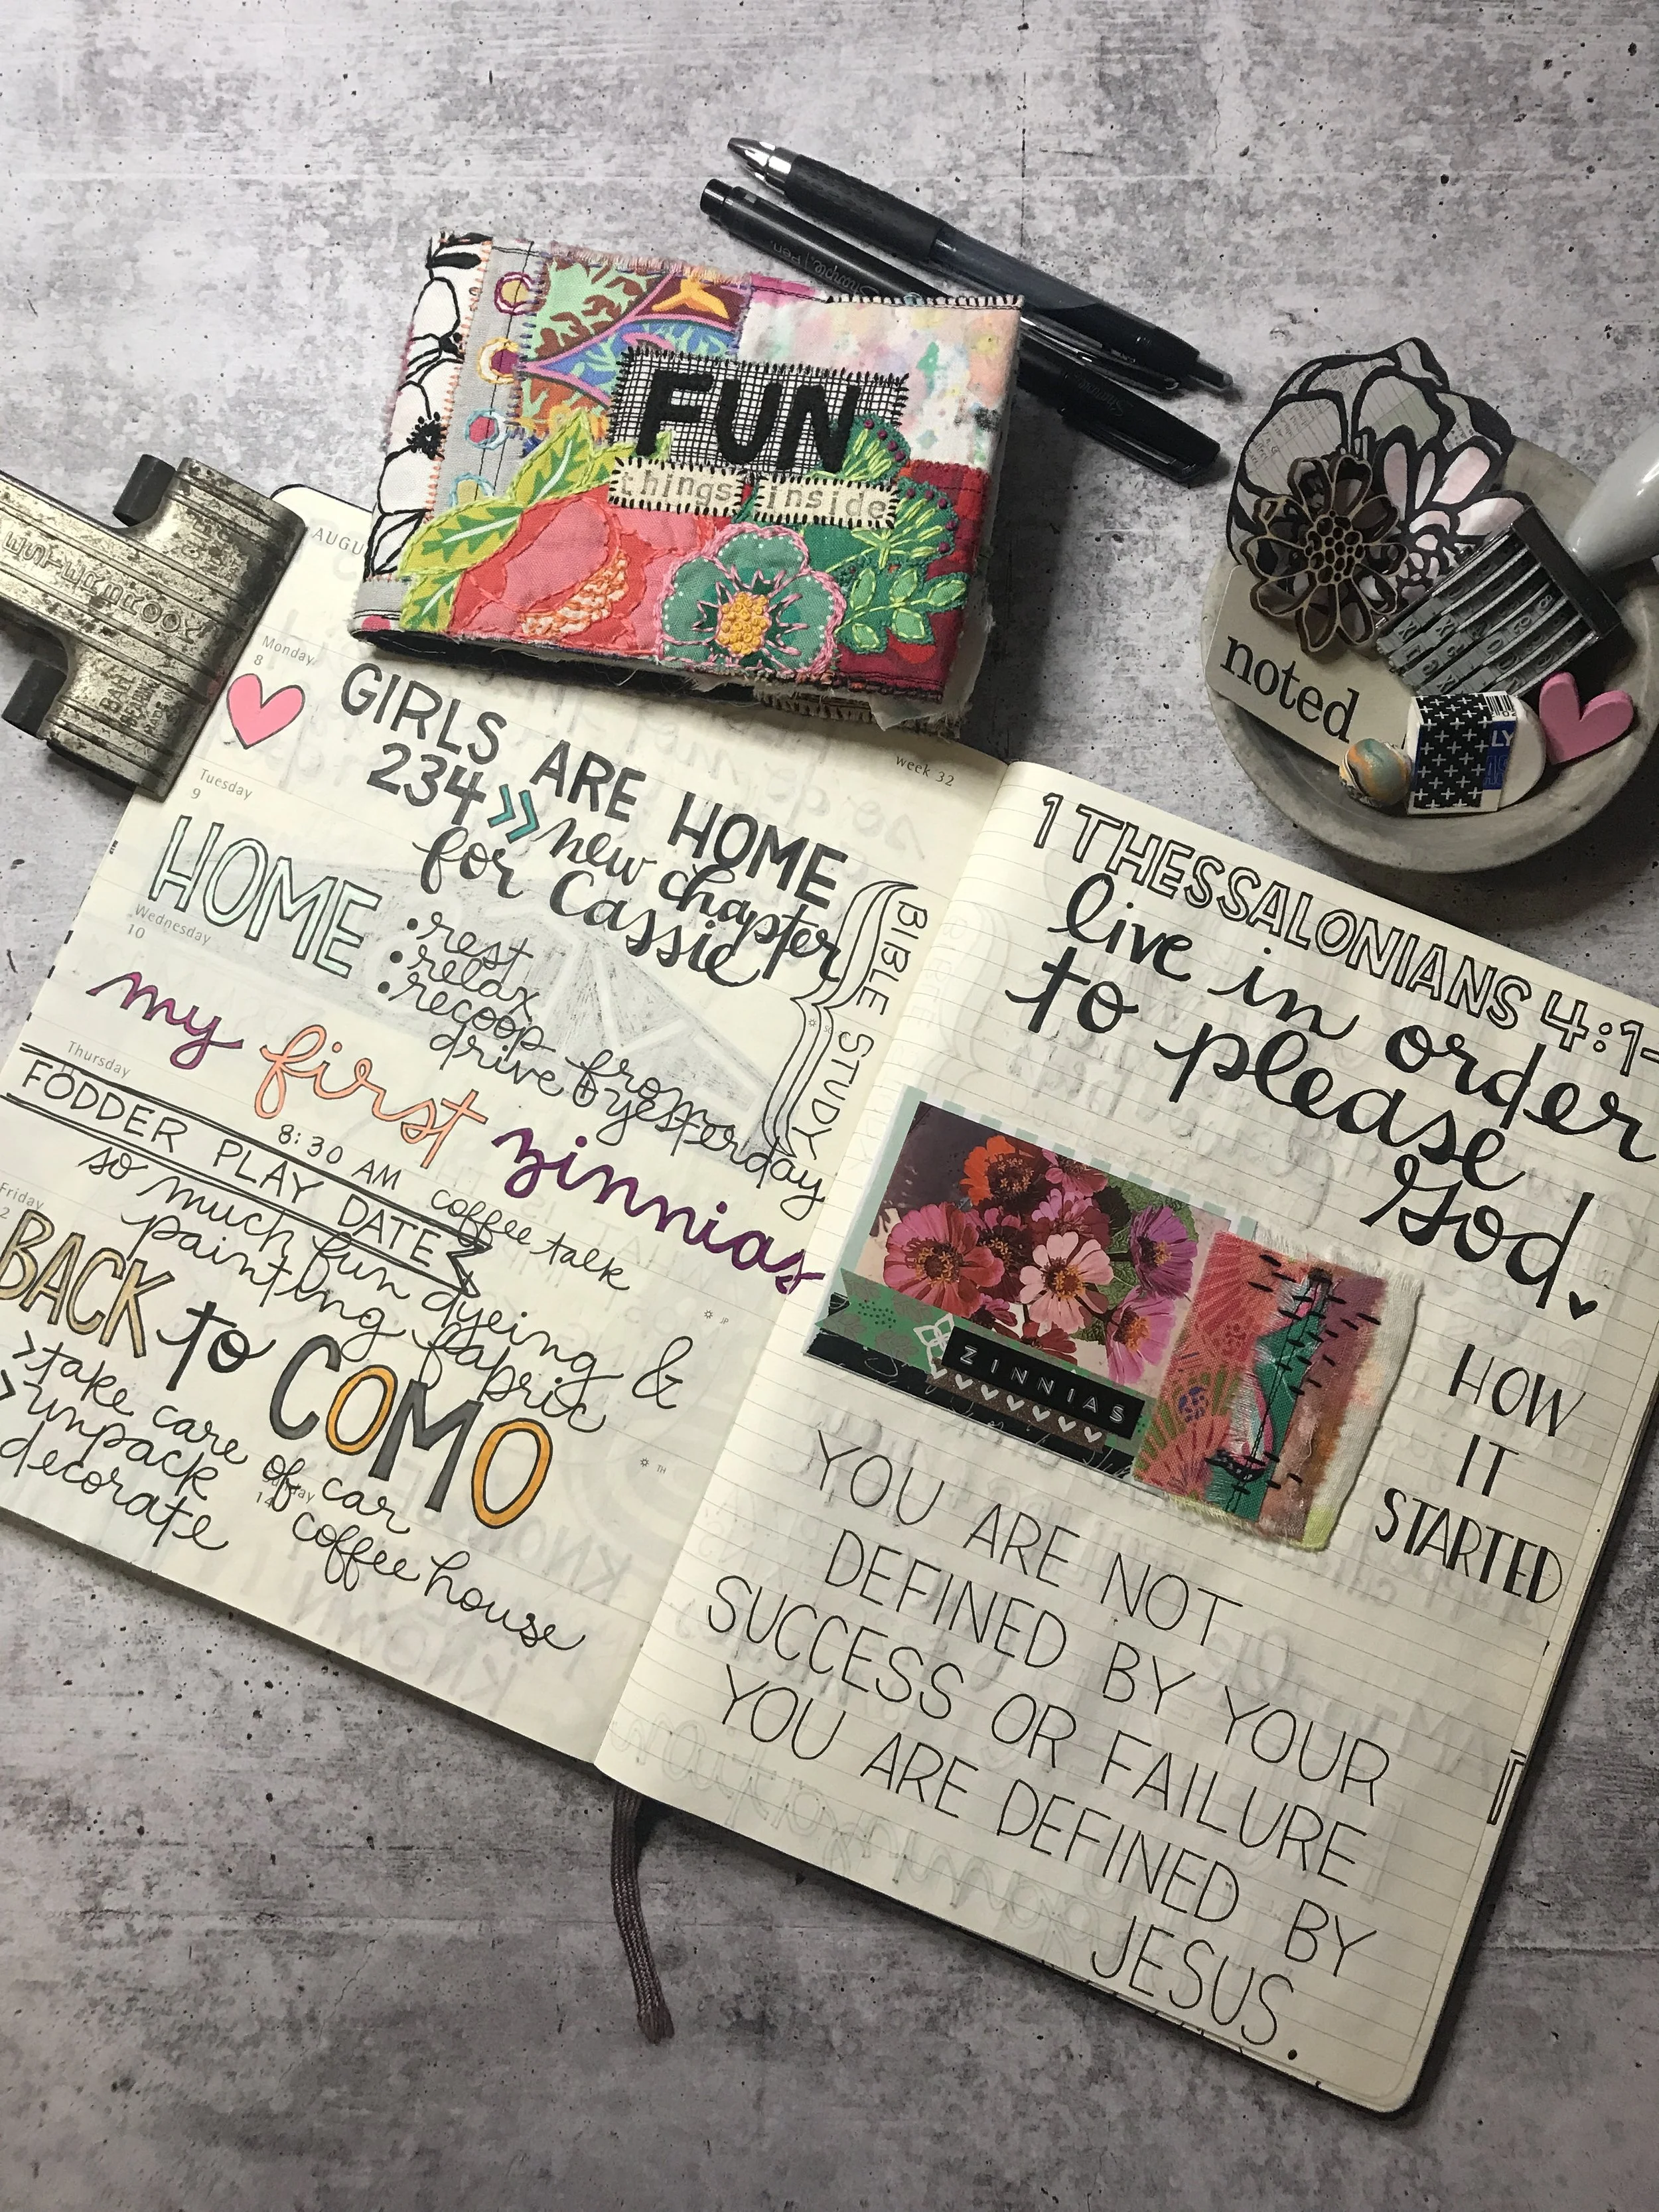 Simple Pen.
FUN
things inside
ESTERBROOK
noted
LY
AUGU
week 32
Monday
8
GIRLS ARE HOME
234 >> new chapter
for Cassie
Tuesday
9
HOME
• rest
• relax
• recoop from
drive yesterday
BIBLE STUDY
Wednesday
10
my first zinnias
Thursday
FODDER PLAY DATE
8:30 AM coffee talk
so much fun dyeing &
painting fabric
Friday
2
BACK to COMO
> take care of car
> unpack coffee house
decorate
14
JP
TH
1 THESSALONIANS 4:1-
live in order
to please
God.
ZINNIAS
HOW
IT
STARTED
YOU ARE NOT
DEFINED BY YOUR
SUCCESS OR FAILURE
YOU ARE DEFINED BY
JESUS.